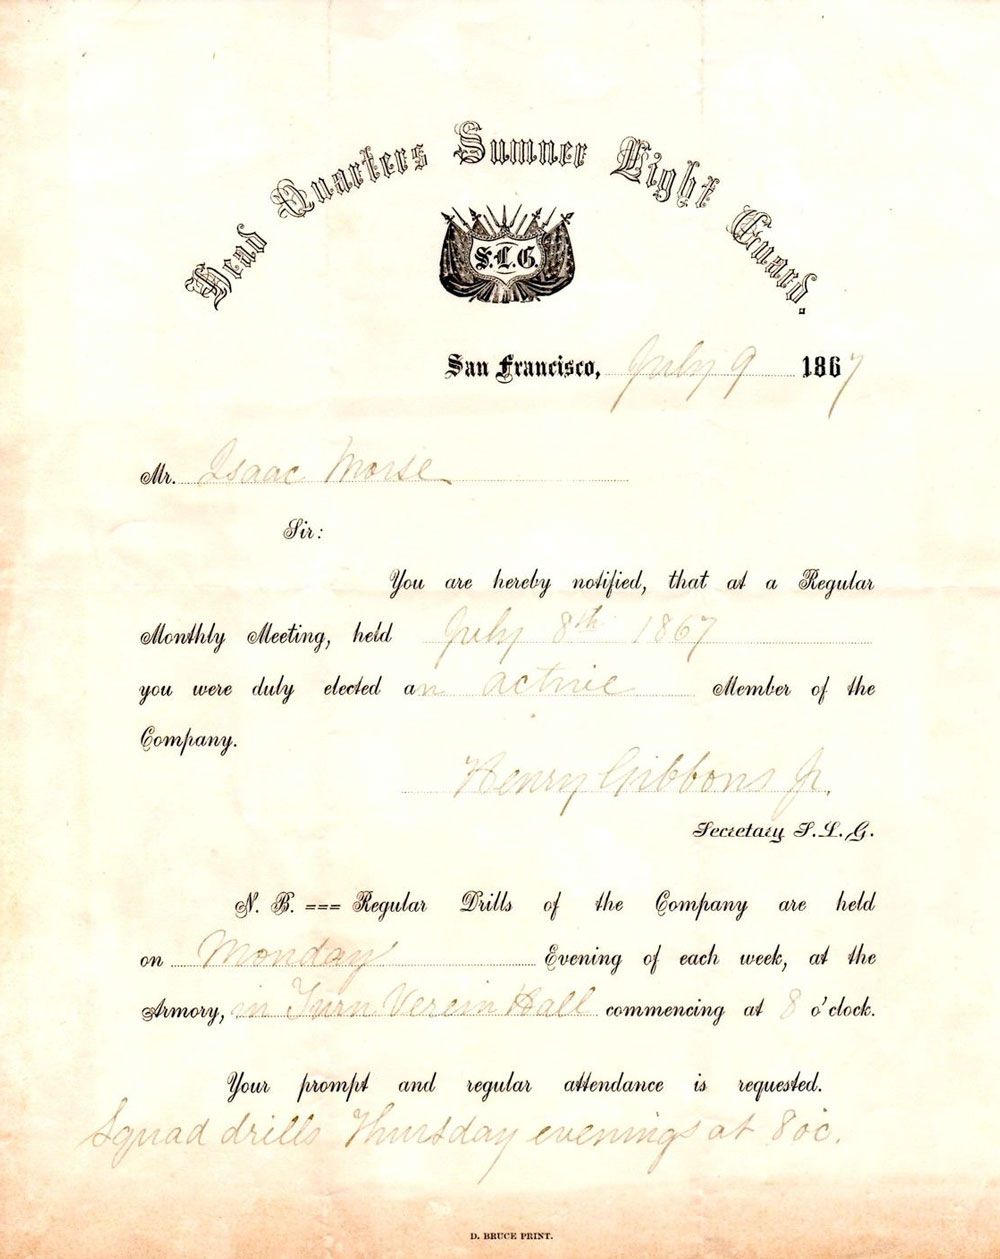 Head Quarters Sumner Light Guard.
S.L.G.
San Francisco, July 9 1867
Mr. Isaac Morse
Sir:
You are hereby notified, that at a Regular
Monthly Meeting, held July 8th 1867
you were duly elected an active Member of the
Company.
Henry Gibbons Jr.
Secretary S. L. G.
N. B. === Regular Drills of the Company are held
on Monday Evening of each week, at the
Armory, in Turn Verein Hall commencing at 8 o'clock.
Your prompt and regular attendance is requested.
Squad drills Thursday evenings at 8 oc.
D. BRUCE PRINT.